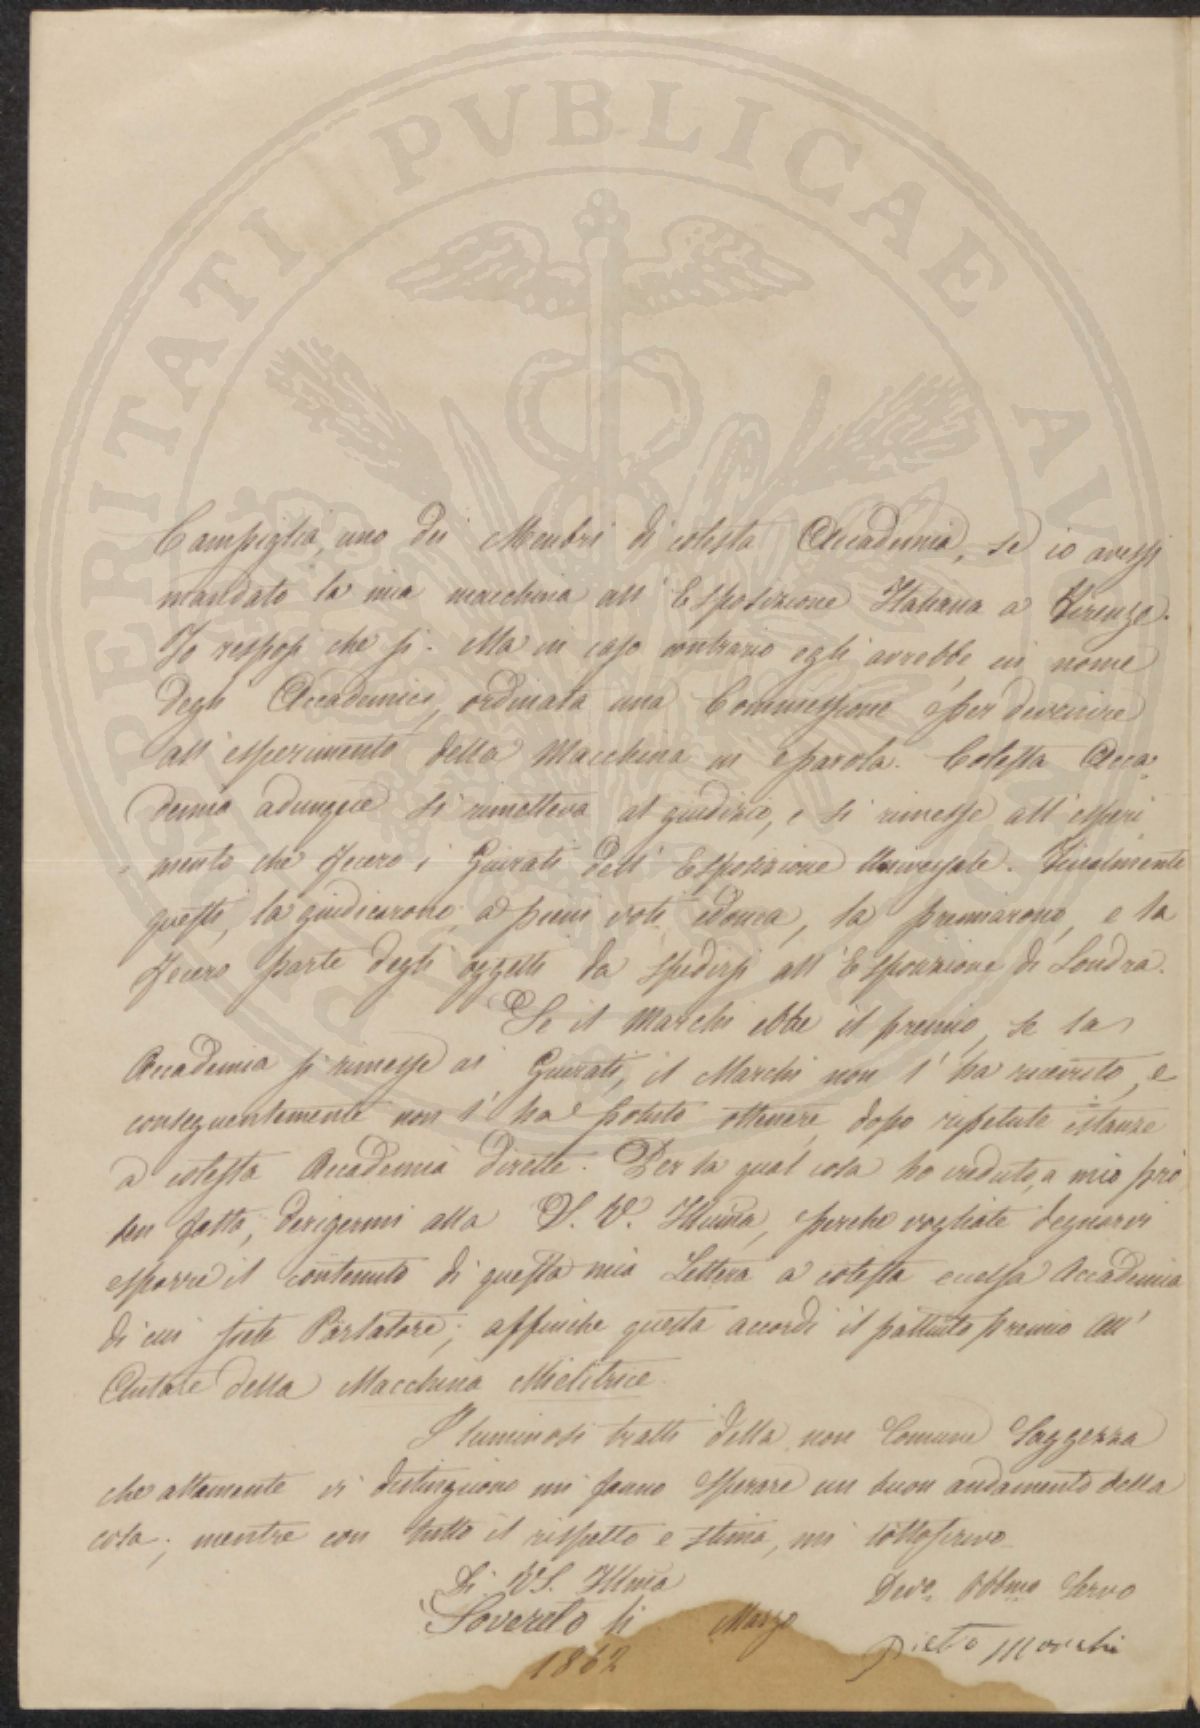 PROSPERITATI PVBLICAE AVGENDAE
Campiglia, uno dei Membri di cotesta Accademia, se io avessi
mandato la mia macchina all' Esposizione Italiana a Firenze.
Io risposi che si. Ma in caso contrario egli avrebbe, in nome
degli Accademici, ordinata una Commissione per devenire
all' esperimento della Macchina in parola. Cotesta Acca-
demia adunque si rimetteva al giudizio, e si rimesse all' esperi
mento che fecero i Giurati dell' Esposizione Universale. Finalmente
questi, la giudicarono, a pieni voti idonea, la premiarono, e la
fecero parte degli oggetti da spedirsi all' Esposizione di Londra.
Se il Marchi ebbe il premio, se la
Accademia si rimesse ai Giurati, il Marchi non l' ha ricevuto, e
conseguentemente non l' ha potuto ottenere, dopo ripetute istanze
a cotesta Accademia dirette. Per la qual cosa ho creduto, a mio pro
ben fatto, derigermi alla S. V. Illma, perche vogliate degnarvi
esporre il contenuto di questa mia Lettera a cotesta eccelsa Accademia
di cui siete Parlatore; affinche questa accordi il pattuito premio all'
Autore della Macchina Mietitrice.
I luminosi tratti della non Comune Saggezza
che altamente vi distinguono mi fanno sperare un buon andamento della
cosa; mentre con tutto il rispetto e stima, mi sottoscrivo
Di VS. Illma
Devo. Obblmo Servo
Sovereto li Marzo
1862
Pietro Marchi